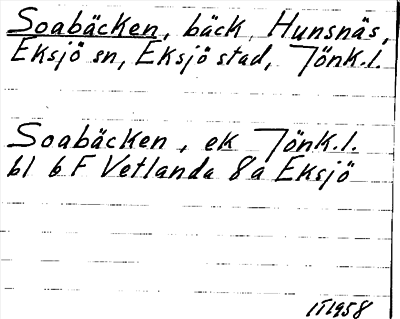 Soabäcken, bäck, Hunsnäs,
Eksjö sn, Eksjö stad, Jönk.l.
Soabäcken, ek Jönk.l.
bl 6 F Vetlanda 8a Eksjö
1958